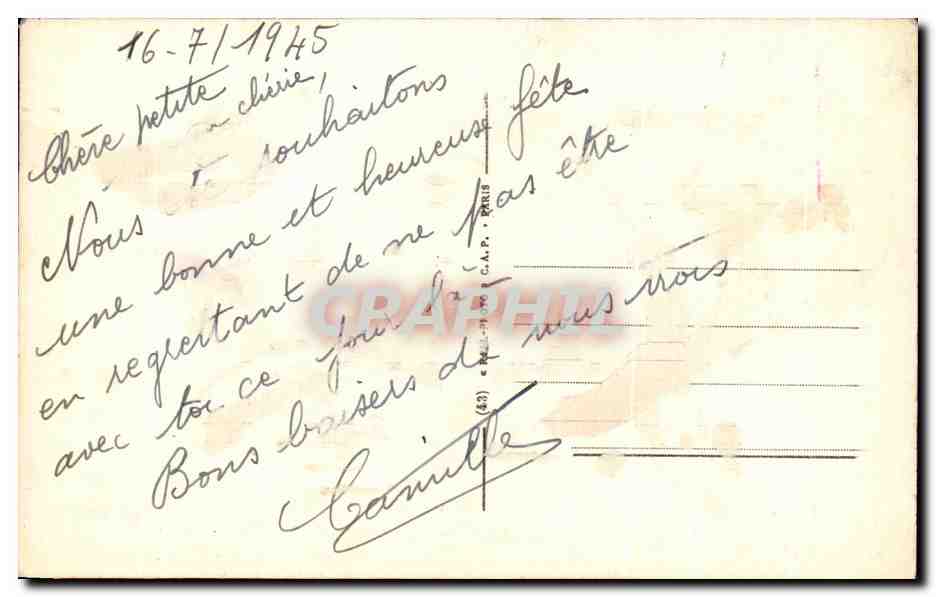 16-7/1945
Chère petite
chérie,
Nous te souhaitons
une bonne et heureuse fête
en regrettant de ne pas être
avec toi ce jour là
Bons baisers de nous trois
Camille
(43) « REAL-PHOTO » C.A.P. - PARIS
CRAPHIL